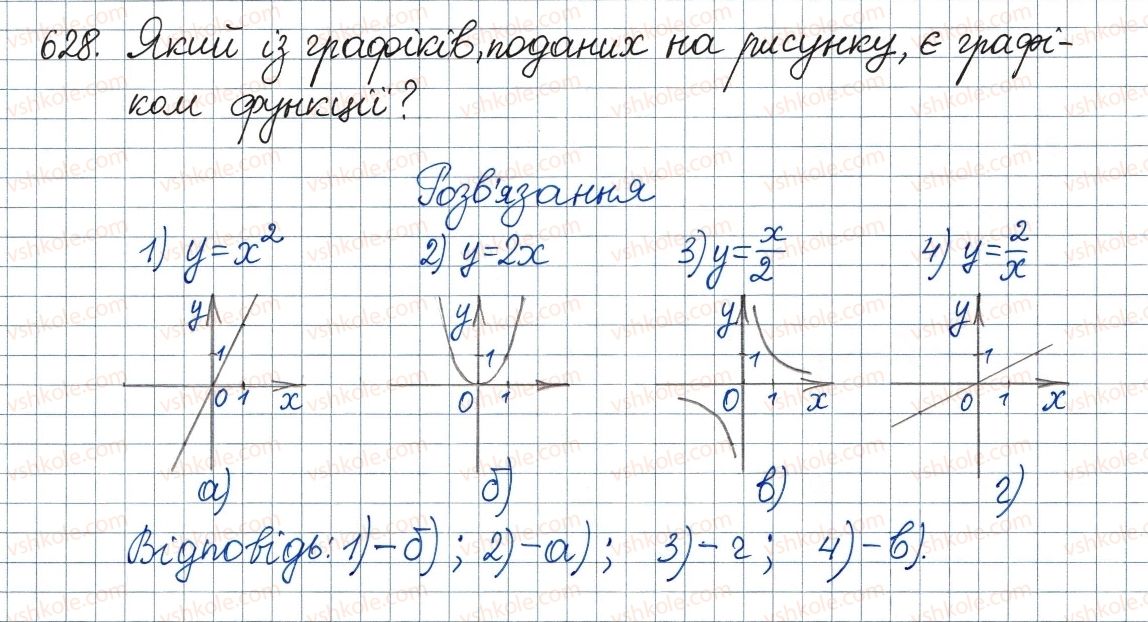 628. Який із графіків, поданих на рисунку, є графі-
ком функції?
Розв'язання
1) y=x² 2) y=2x 3) y=x/2 4) y=2/x
y 1 0 1 x
y 1 0 1
y 1 0 1 x
y 1 0 1 x
а) б) в) г)
Відповідь: 1)-б); 2)-а); 3)-г; 4)-в).
vshkole.com